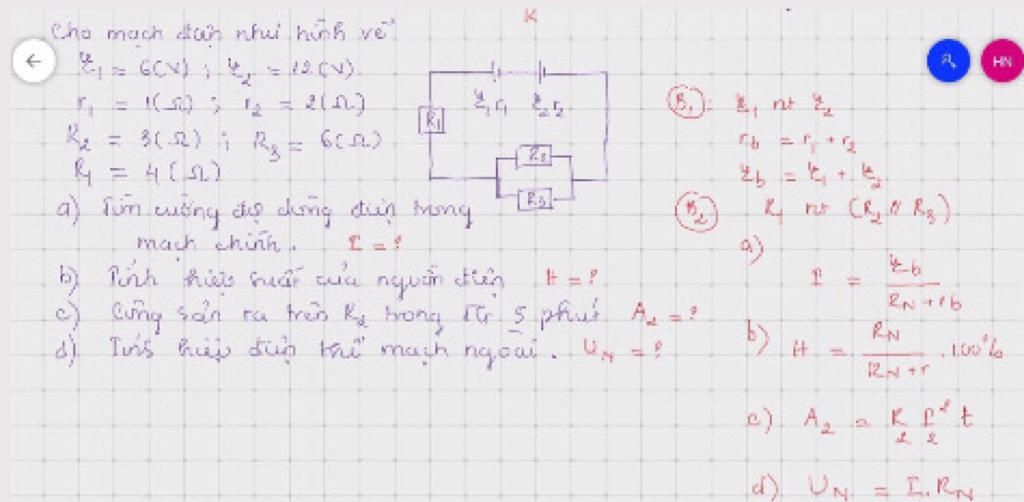 K
Cho mạch điện như hình vẽ
ξ₁ = 6(V) ; ξ₂ = 12(V)
r₁ = 1(Ω) ; r₂ = 2(Ω)
R₂ = 3(Ω) ; R₃ = 6(Ω)
R₁ = 4(Ω)
a) Tìm cường độ dòng điện trong
mạch chính. I = ?
b) Tính hiệu suất của nguồn điện H = ?
c) Công sản ra trên R₂ trong 5 phút A₂ = ?
d) Tính hiệu điện thế mạch ngoài. U_N = ?
ξ₁r₁ ξ₂r₂
R₁
R₂
R₃
B₁: ξ₁ nt ξ₂
r_b = r₁ + r₂
ξ_b = ξ₁ + ξ₂
B₂ R₁ nt (R₂ // R₃)
a)
I = ξ_b / (R_N + r_b)
b) H = R_N / (R_N + r) .100%
c) A₂ = R₂ I₂² t
d) U_N = I.R_N
HN